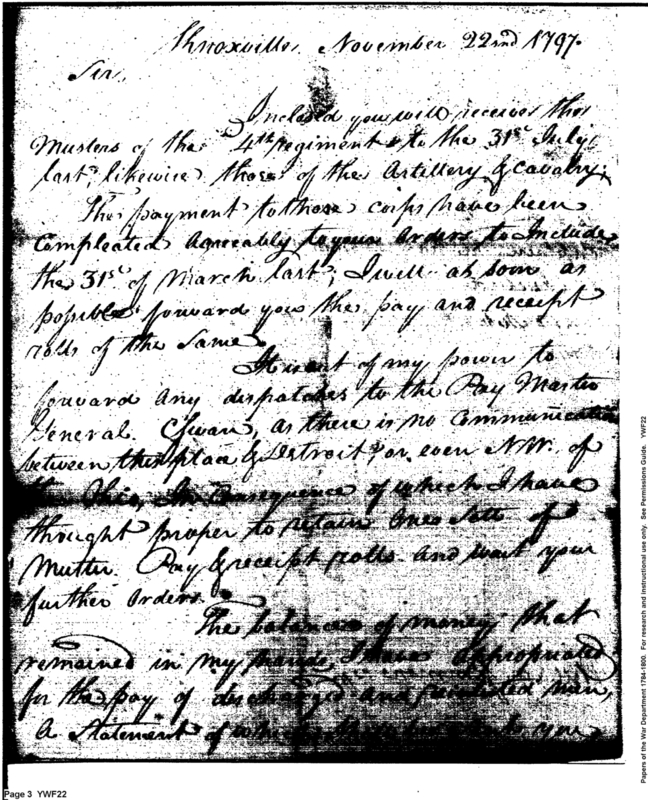 Knoxville November 22nd 1797.
Sir,
Inclosed you will receive the
Musters of the 4th regiment to the 31st July
last, likewise those of the Artillery & Cavalry;
The payment to those corps have been
Compleated Agreeably to your Orders to Include
the 31st of March last; I will as soon as
possible forward you the pay and receipt
rolls of the Same.
It is out of my power to
forward any dispatches to the Pay Master
General. CSwan, as there is no Communication
between this place & Detroit, or even N.W. of
the Ohio, In Consequence of which I have
thought proper to retain One Sett of
Muster. Pay & receipt rolls and wait your
further Orders.
The balance of money that
remained in my hands, I have Appropriated
for the pay of discharged and men,
A Statement of which you
Papers of the War Department 1784-1800. For research and instructional use only. See Permissions Guide. YWF22
Page 3 YWF22